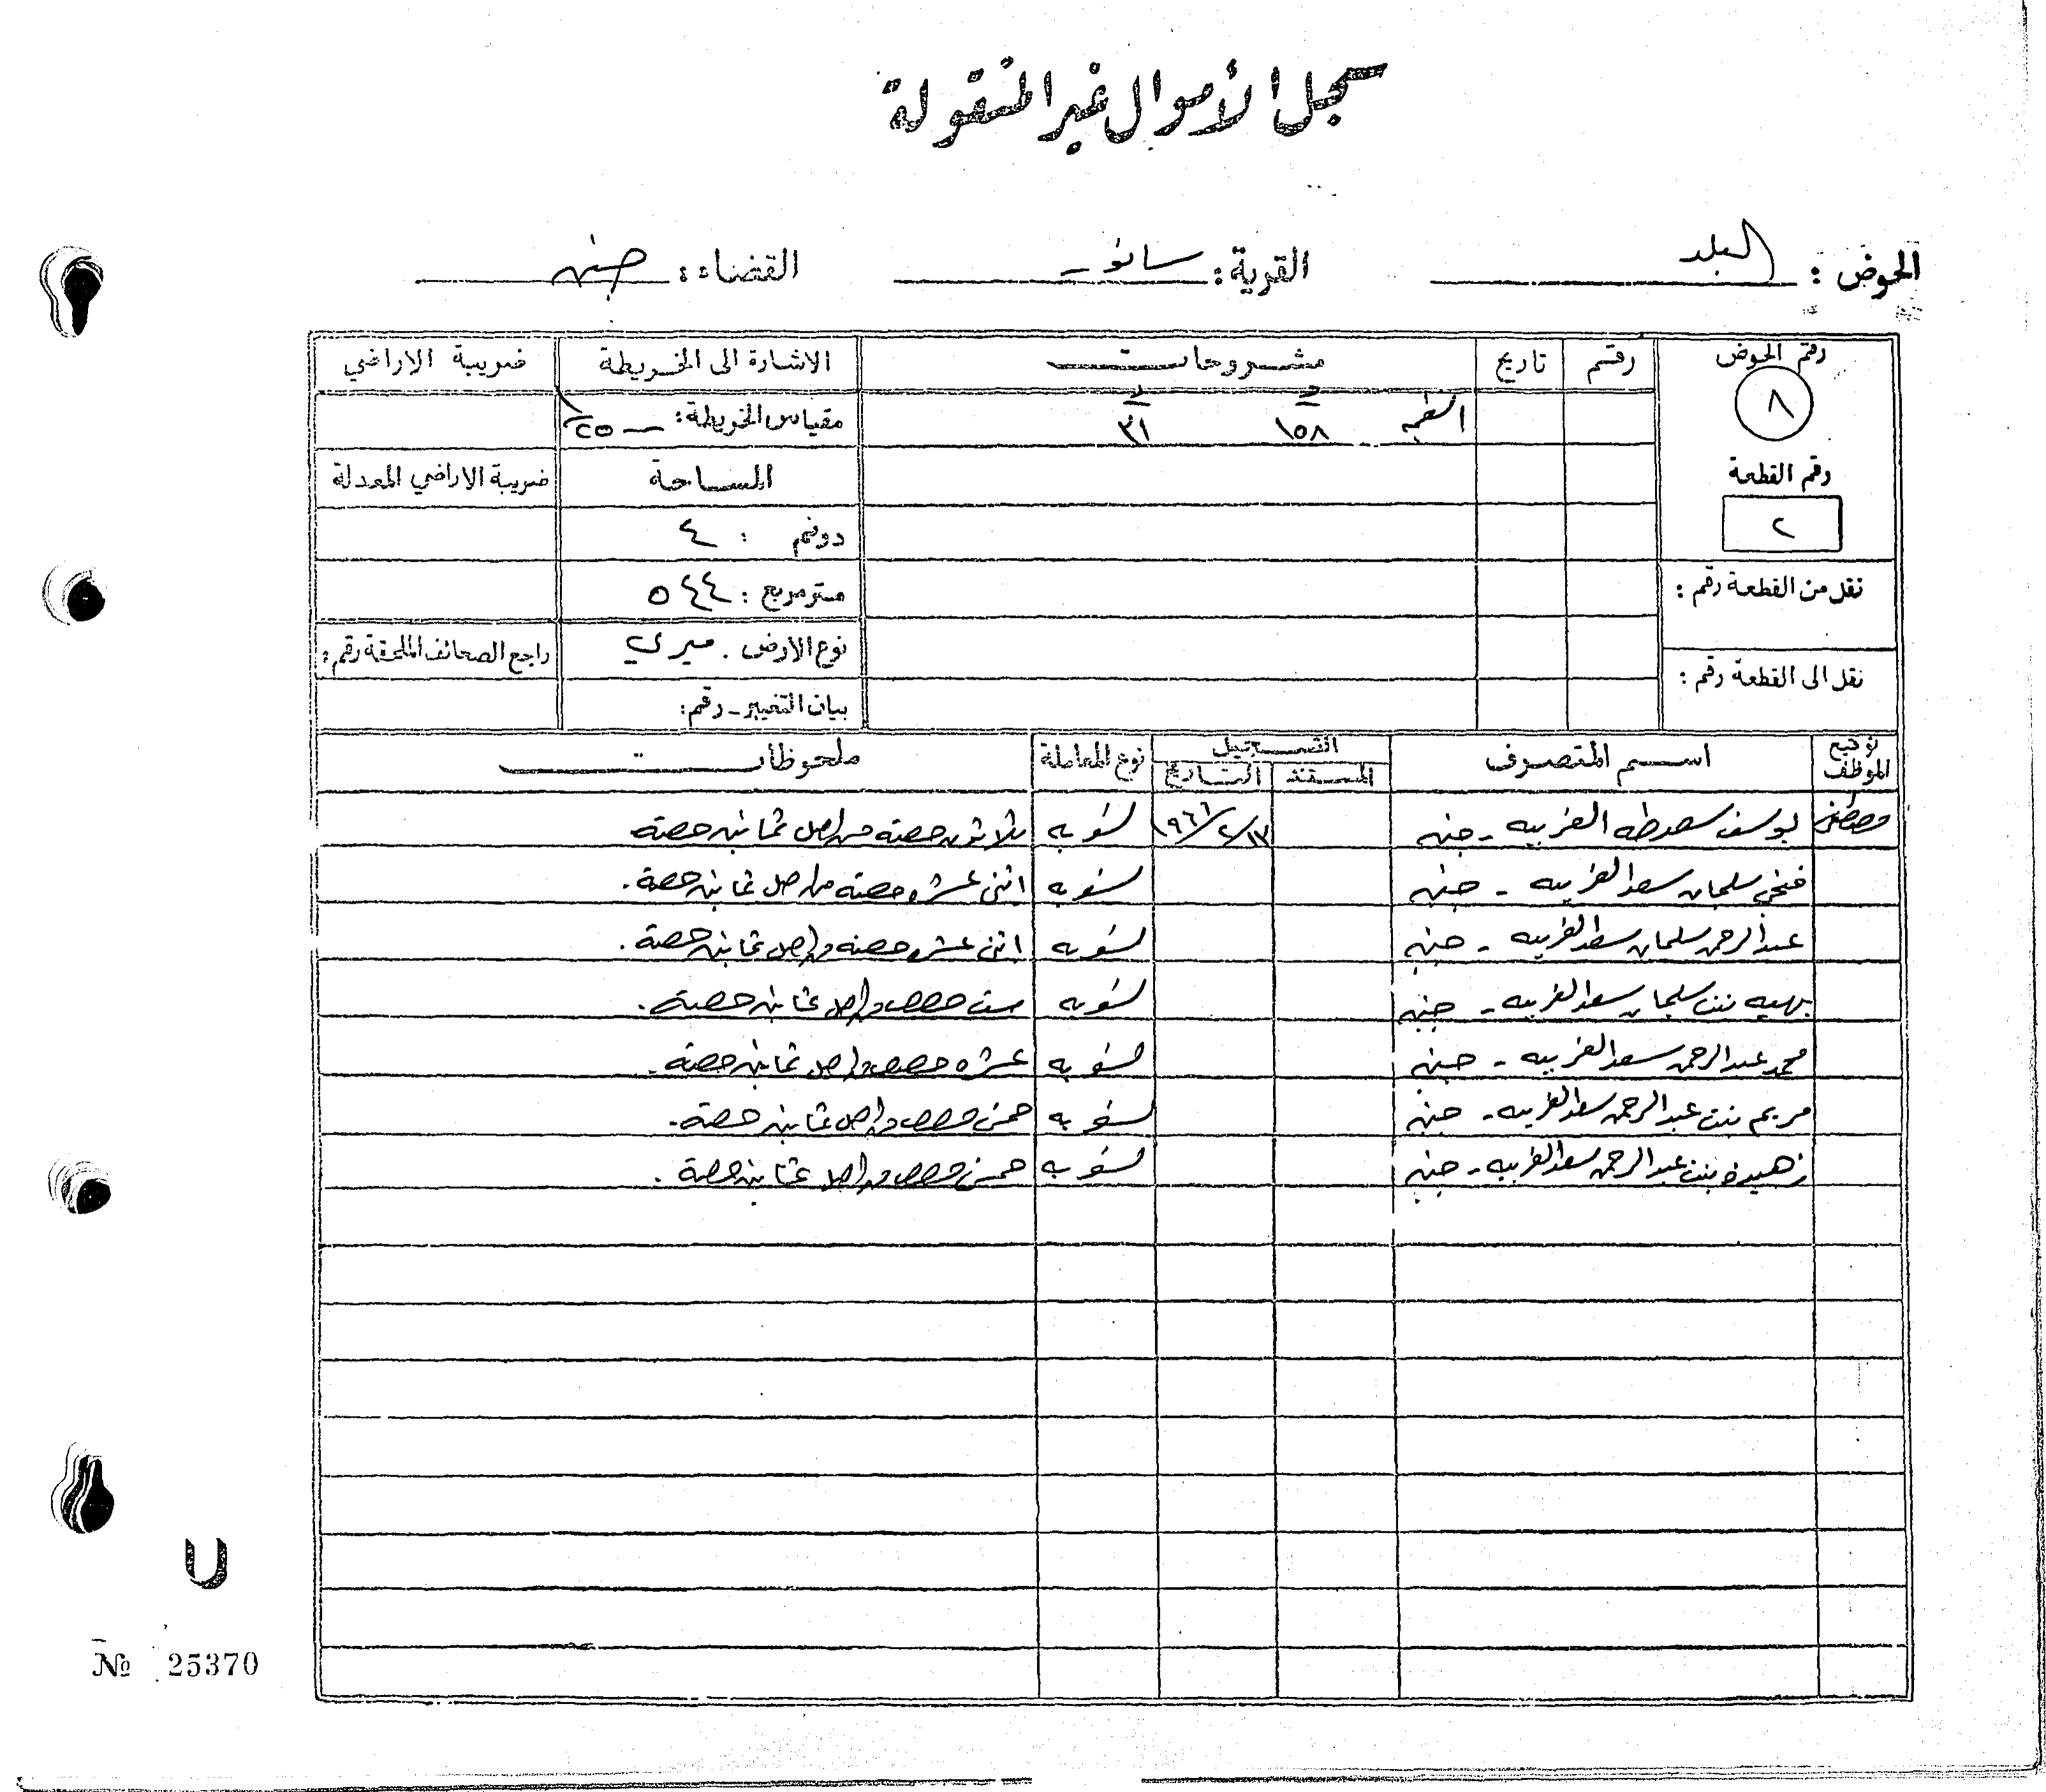 سجل الأموال غير المنقولة
الحوض : البلد القرية : سانور القضاء : جنين
رقم الحوض رقم تاريخ مشروحات الاشارة الى الخريطة ضريبة الاراضي
٨ ١٥٨ ٣١ مقياس الخريطة : ١/٢٥٠٠
رقم القطعة المساحة ضريبة الاراضي المعدلة
٢ دونم : ٤
نقل من القطعة رقم : متر مربع : ٥٤٤
نوع الارض . ميري راجع الصحائف الملحقة رقم :
نقل الى القطعة رقم : بيان التغيير - رقم :
توقيع الموظف اسم المتصرف التسجيل نوع المعاملة ملحوظات
المستند التاريخ
يوسف سعد طه الغربيه - جنين ١٣/٢/٩٦١ تسويه ثلاثون حصة من اصل ثمانين حصة
فتحي سليمان سعد الغربيه - جنين تسويه اثنى عشره حصة من اصل ثمانين حصة .
عبد الرحمن سليمان سعد الغربيه - جنين تسويه اثنى عشره حصة من اصل ثمانين حصة .
بهيه بنت سليمان سعد الغربيه - جنين تسويه ست حصص من اصل ثمانين حصة .
محمد عبد الرحمن سعد الغربيه - جنين تسويه عشره حصص من اصل ثمانين حصة .
مريم بنت عبد الرحمن سعد الغربيه - جنين تسويه خمس حصص من اصل ثمانين حصة .
زهيده بنت عبد الرحمن سعد الغربيه - جنين تسويه خمس حصص من اصل ثمانين حصة .
U
№ 25370